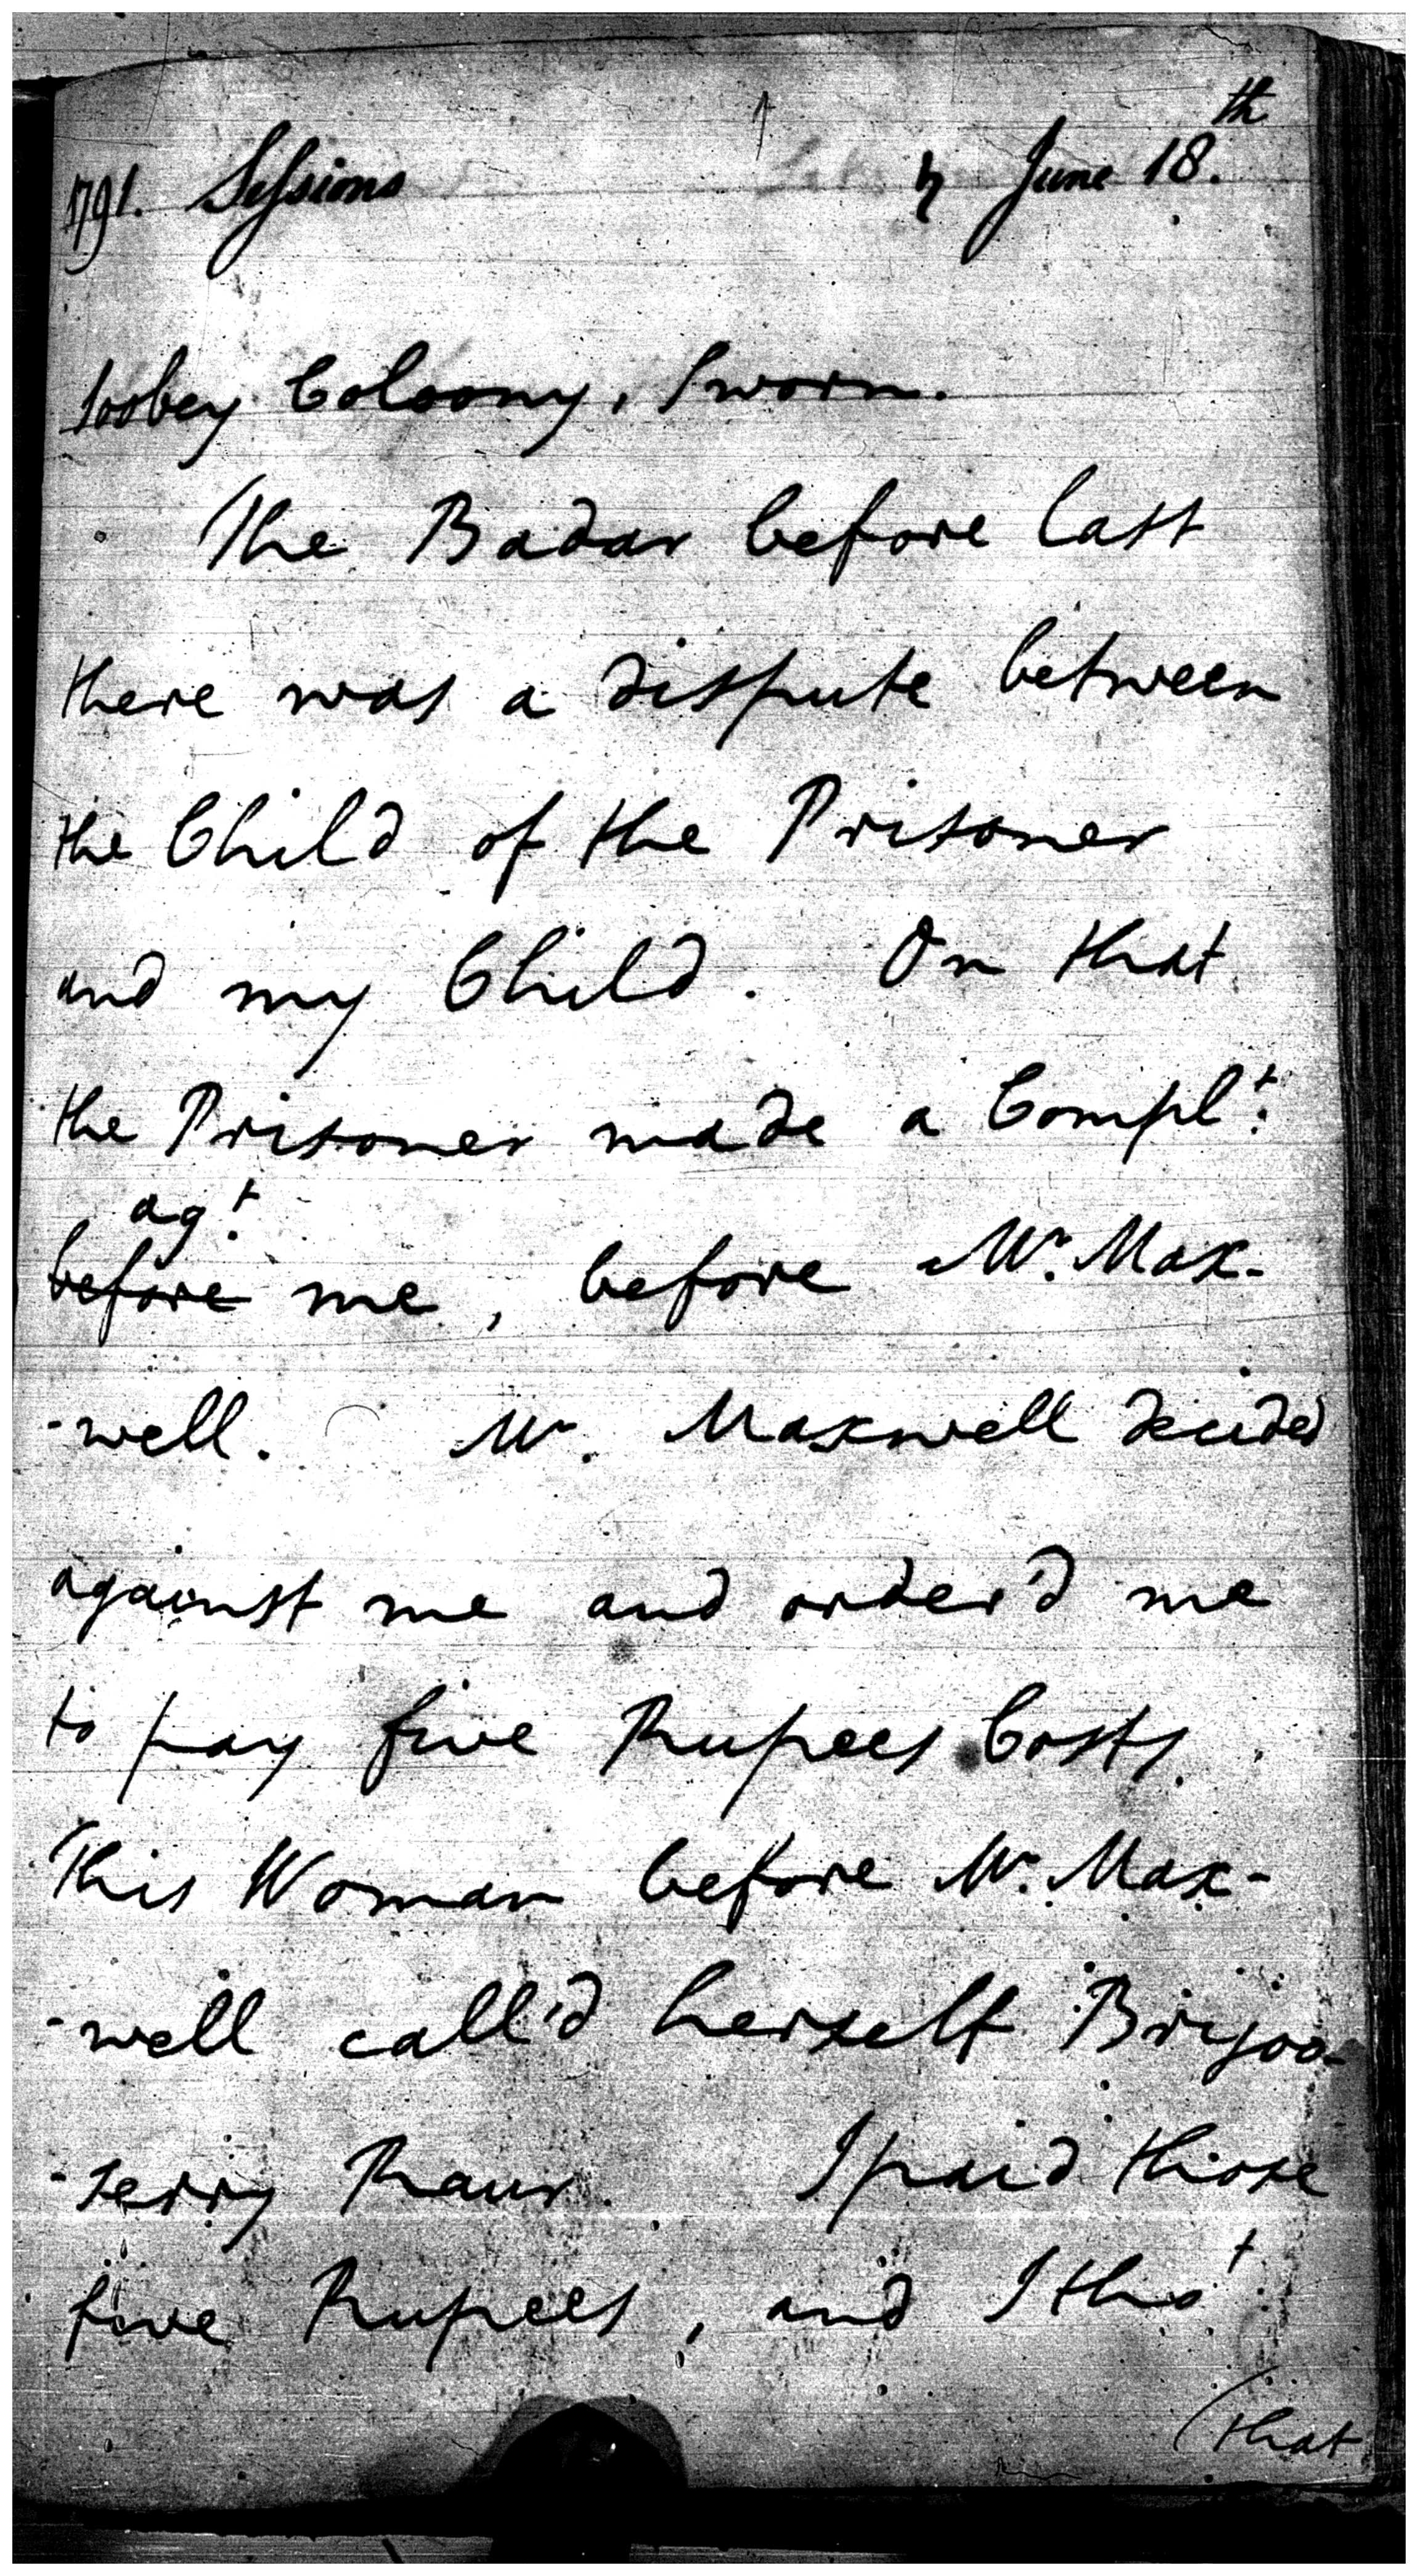 1791. Sessions ♄ June 18.th
Soobey Coloony, Sworn.
The Badar before last
there was a dispute between
the Child of the Prisoner
and my Child. On that
the Prisoner made a Compl.t
ag.t
before me, before Mr. Max-
-well. Mr. Maxwell decided
against me and order'd me
to pay five Rupees Costs.
This Woman before Mr. Max-
-well call'd herself Brijoo-
-serry Raur. I paid those
five Rupees, and I tho.t
(that